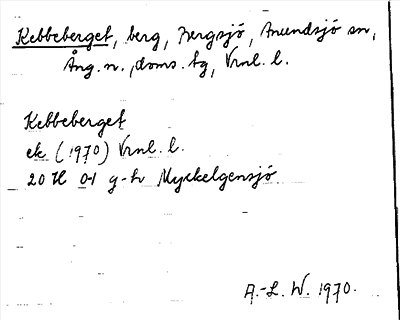 Kebbeberget, berg, Bergsjö, Anundsjö sn,
Ång. n., doms. tg, Vrnl. l.
Kebbeberget
ek (1970) Vrnl. l.
20 H 0-1 g-h Myckelgensjö
A.-L. W. 1970.